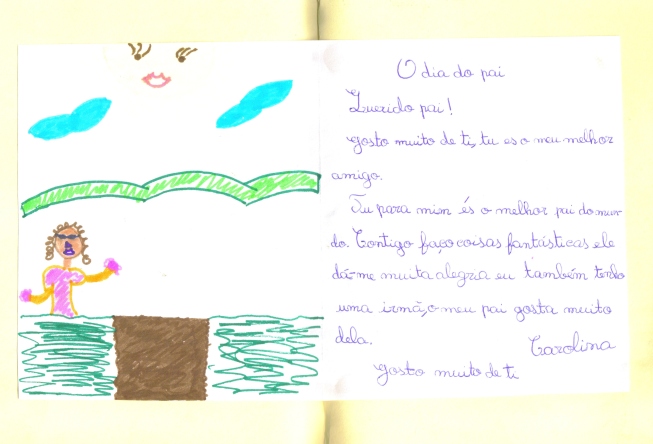 O dia do pai
Querido pai!
gosto muito de ti, tu es o meu melhor
amigo.
Tu para mim és o melhor pai do mun-
do. Contigo faço coisas fantásticas ele
dá-me muita alegra eu também tenho
uma irmã, o meu pai gosta muito
dela.
Carolina
gosto muito de ti